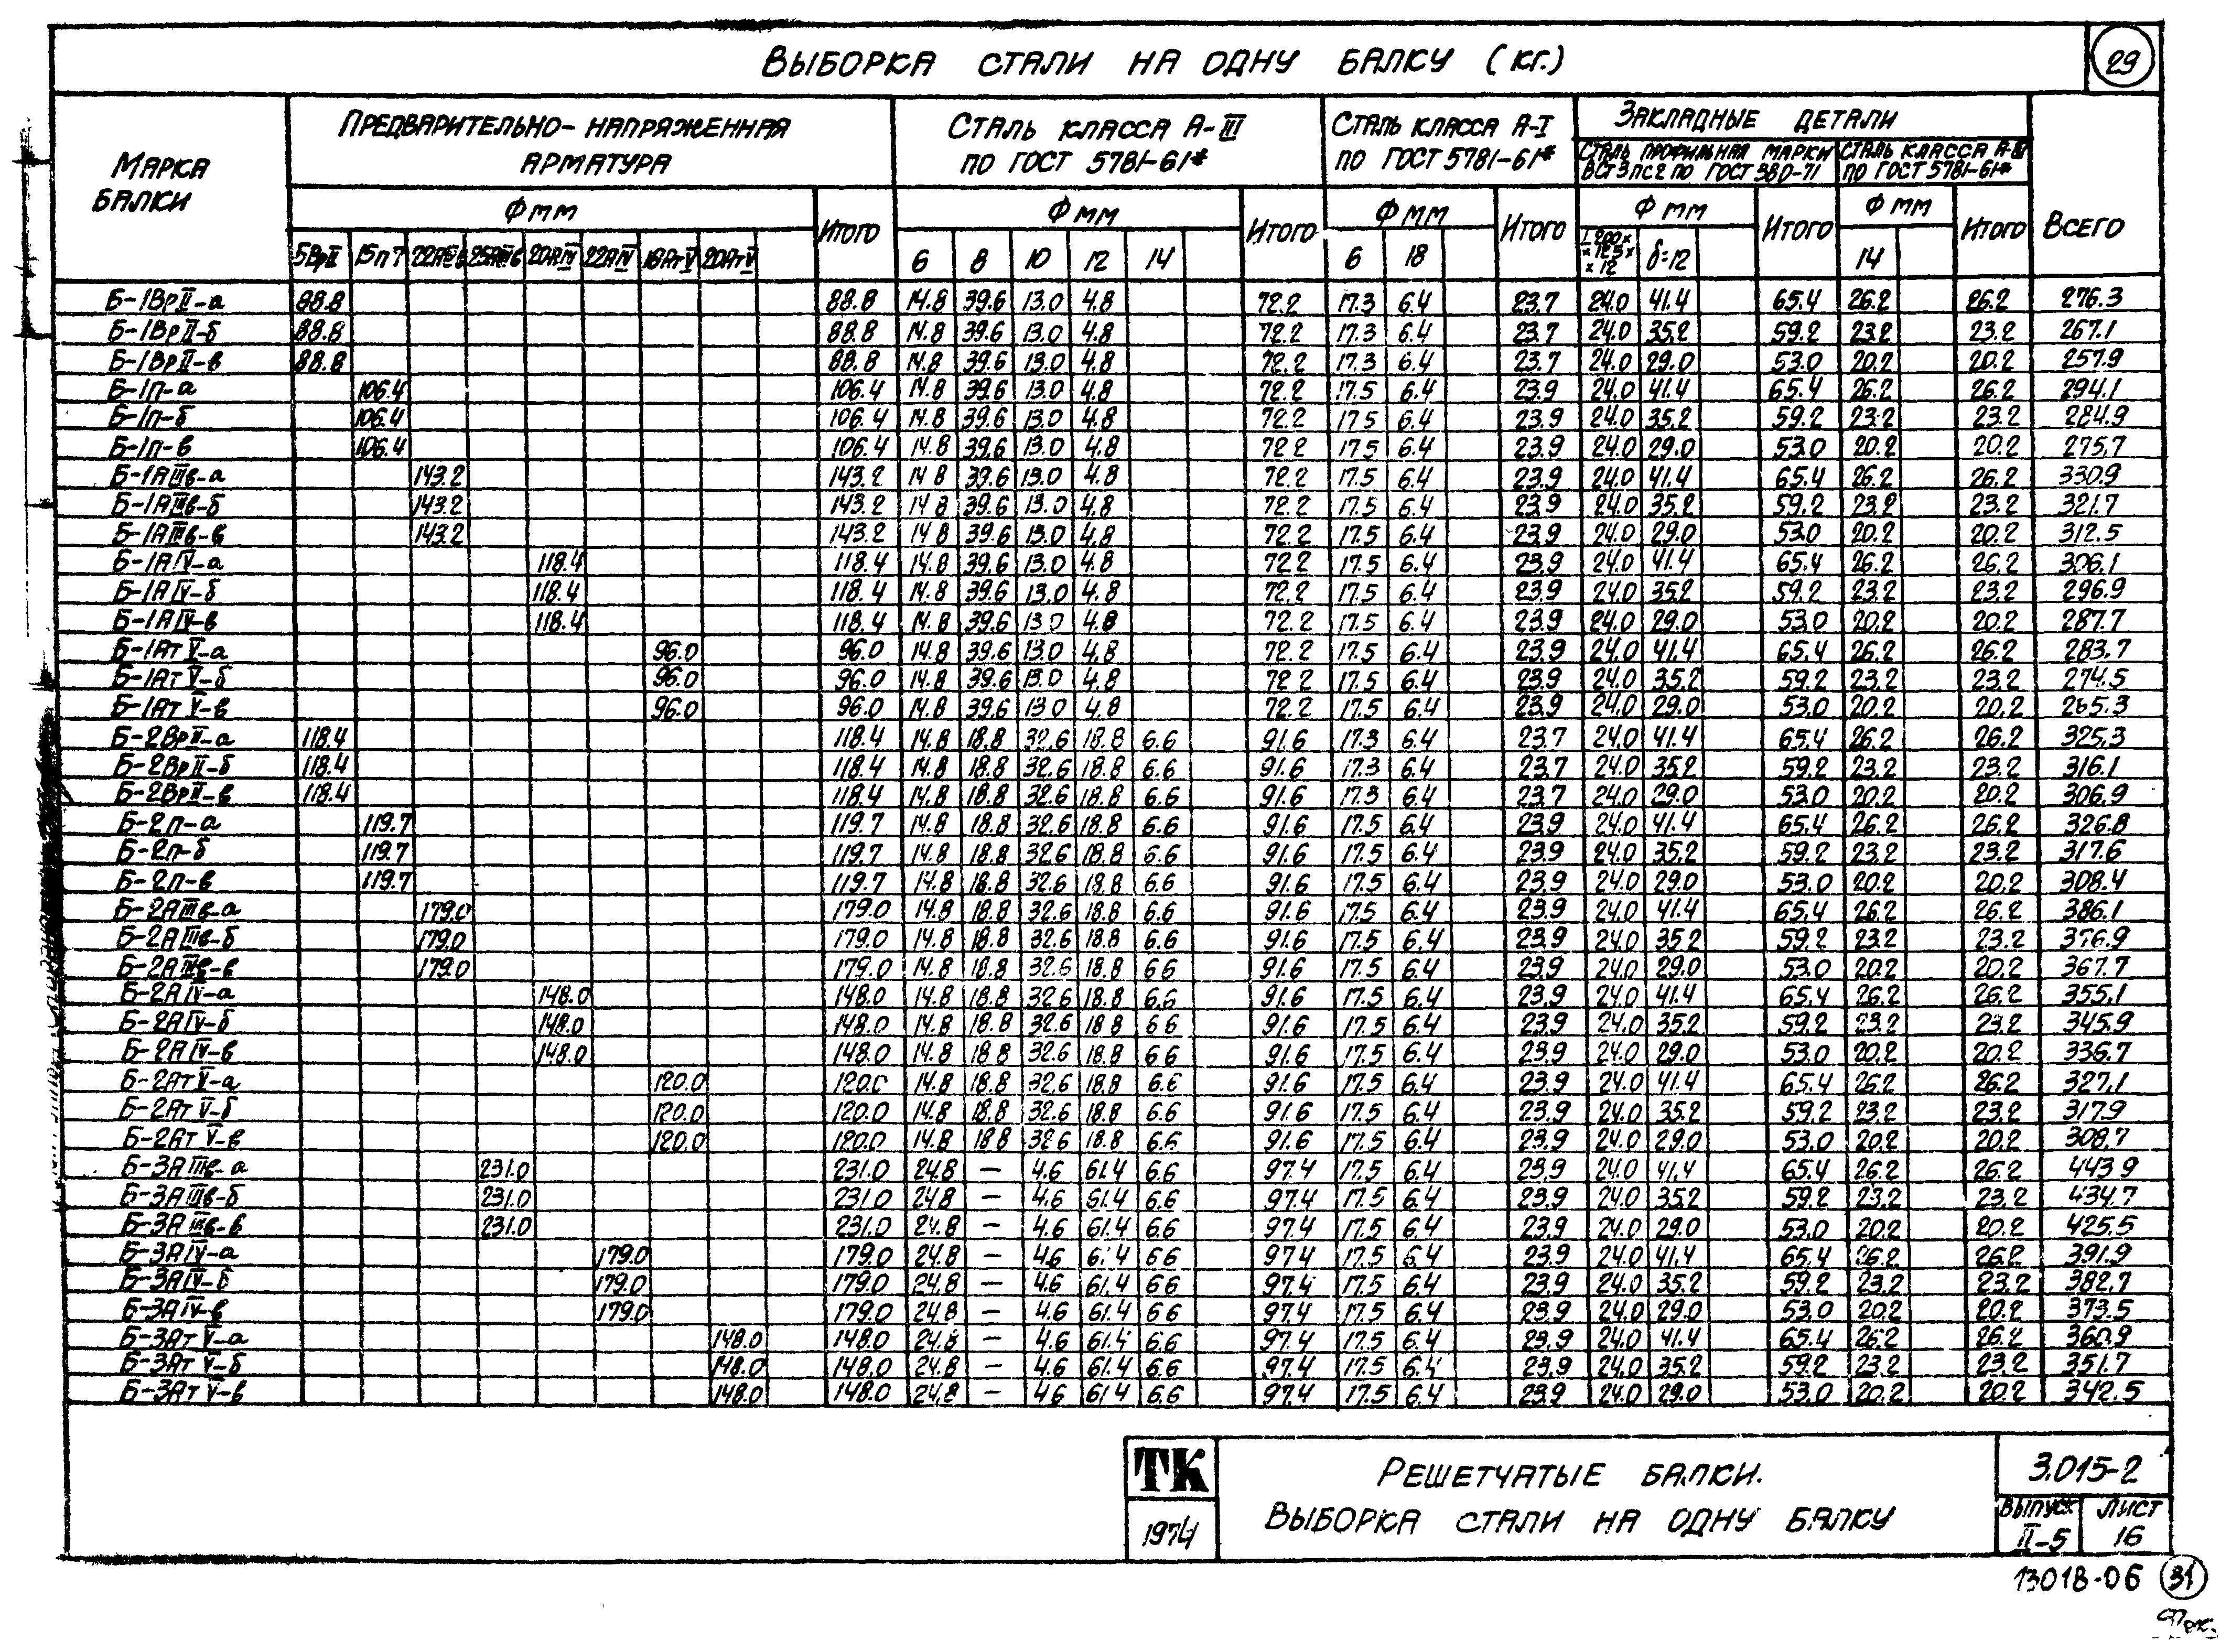 29
Выборка стали на одну балку (кг.)
Марка балки
Предварительно-напряженная арматура
Сталь класса А-III по ГОСТ 5781-61*
Сталь класса А-I по ГОСТ 5781-61*
Закладные детали
Сталь профильная марки ВСт3пс2 по ГОСТ 380-71
Сталь класса А-III по ГОСТ 5781-61*
Всего
Ф мм Итого Ф мм Итого Ф мм Итого Ф мм Итого Ф мм Итого
5ВрII 15п7 22АIIIв 25АIIIв 20АIV 22АIV 18АтV 20АтV 6 8 10 12 14 6 18 L200×125×12 δ=12 14
Б-1ВрII-а 88.8 88.8 14.8 39.6 13.0 4.8 72.2 17.3 6.4 23.7 24.0 41.4 65.4 26.2 26.2 276.3
Б-1ВрII-б 88.8 88.8 14.8 39.6 13.0 4.8 72.2 17.3 6.4 23.7 24.0 35.2 59.2 23.2 23.2 267.1
Б-1ВрII-в 88.8 88.8 14.8 39.6 13.0 4.8 72.2 17.3 6.4 23.7 24.0 29.0 53.0 20.2 20.2 257.9
Б-1п-а 106.4 106.4 14.8 39.6 13.0 4.8 72.2 17.5 6.4 23.9 24.0 41.4 65.4 26.2 26.2 294.1
Б-1п-б 106.4 106.4 14.8 39.6 13.0 4.8 72.2 17.5 6.4 23.9 24.0 35.2 59.2 23.2 23.2 284.9
Б-1п-в 106.4 106.4 14.8 39.6 13.0 4.8 72.2 17.5 6.4 23.9 24.0 29.0 53.0 20.2 20.2 275.7
Б-1АIIIв-а 143.2 143.2 14.8 39.6 13.0 4.8 72.2 17.5 6.4 23.9 24.0 41.4 65.4 26.2 26.2 330.9
Б-1АIIIв-б 143.2 143.2 14.8 39.6 13.0 4.8 72.2 17.5 6.4 23.9 24.0 35.2 59.2 23.2 23.2 321.7
Б-1АIIIв-в 143.2 143.2 14.8 39.6 13.0 4.8 72.2 17.5 6.4 23.9 24.0 29.0 53.0 20.2 20.2 312.5
Б-1АIV-а 118.4 118.4 14.8 39.6 13.0 4.8 72.2 17.5 6.4 23.9 24.0 41.4 65.4 26.2 26.2 306.1
Б-1АIV-б 118.4 118.4 14.8 39.6 13.0 4.8 72.2 17.5 6.4 23.9 24.0 35.2 59.2 23.2 23.2 296.9
Б-1АIV-в 118.4 118.4 14.8 39.6 13.0 4.8 72.2 17.5 6.4 23.9 24.0 29.0 53.0 20.2 20.2 287.7
Б-1АтV-а 96.0 96.0 14.8 39.6 13.0 4.8 72.2 17.5 6.4 23.9 24.0 41.4 65.4 26.2 26.2 283.7
Б-1АтV-б 96.0 96.0 14.8 39.6 13.0 4.8 72.2 17.5 6.4 23.9 24.0 35.2 59.2 23.2 23.2 274.5
Б-1АтV-в 96.0 96.0 14.8 39.6 13.0 4.8 72.2 17.5 6.4 23.9 24.0 29.0 53.0 20.2 20.2 265.3
Б-2ВрII-а 118.4 118.4 14.8 18.8 32.6 18.8 6.6 91.6 17.3 6.4 23.7 24.0 41.4 65.4 26.2 26.2 325.3
Б-2ВрII-б 118.4 118.4 14.8 18.8 32.6 18.8 6.6 91.6 17.3 6.4 23.7 24.0 35.2 59.2 23.2 23.2 316.1
Б-2ВрII-в 118.4 118.4 14.8 18.8 32.6 18.8 6.6 91.6 17.3 6.4 23.7 24.0 29.0 53.0 20.2 20.2 306.9
Б-2п-а 119.7 119.7 14.8 18.8 32.6 18.8 6.6 91.6 17.5 6.4 23.9 24.0 41.4 65.4 26.2 26.2 326.8
Б-2п-б 119.7 119.7 14.8 18.8 32.6 18.8 6.6 91.6 17.5 6.4 23.9 24.0 35.2 59.2 23.2 23.2 317.6
Б-2п-в 119.7 119.7 14.8 18.8 32.6 18.8 6.6 91.6 17.5 6.4 23.9 24.0 29.0 53.0 20.2 20.2 308.4
Б-2АIIIв-а 179.0 179.0 14.8 18.8 32.6 18.8 6.6 91.6 17.5 6.4 23.9 24.0 41.4 65.4 26.2 26.2 386.1
Б-2АIIIв-б 179.0 179.0 14.8 18.8 32.6 18.8 6.6 91.6 17.5 6.4 23.9 24.0 35.2 59.2 23.2 23.2 376.9
Б-2АIIIв-в 179.0 179.0 14.8 18.8 32.6 18.8 6.6 91.6 17.5 6.4 23.9 24.0 29.0 53.0 20.2 20.2 367.7
Б-2АIV-а 148.0 148.0 14.8 18.8 32.6 18.8 6.6 91.6 17.5 6.4 23.9 24.0 41.4 65.4 26.2 26.2 355.1
Б-2АIV-б 148.0 148.0 14.8 18.8 32.6 18.8 6.6 91.6 17.5 6.4 23.9 24.0 35.2 59.2 23.2 23.2 345.9
Б-2АIV-в 148.0 148.0 14.8 18.8 32.6 18.8 6.6 91.6 17.5 6.4 23.9 24.0 29.0 53.0 20.2 20.2 336.7
Б-2АтV-а 120.0 120.0 14.8 18.8 32.6 18.8 6.6 91.6 17.5 6.4 23.9 24.0 41.4 65.4 26.2 26.2 327.1
Б-2АтV-б 120.0 120.0 14.8 18.8 32.6 18.8 6.6 91.6 17.5 6.4 23.9 24.0 35.2 59.2 23.2 23.2 317.9
Б-2АтV-в 120.0 120.0 14.8 18.8 32.6 18.8 6.6 91.6 17.5 6.4 23.9 24.0 29.0 53.0 20.2 20.2 308.7
Б-3АIIIв-а 231.0 231.0 24.8 — 4.6 61.4 6.6 97.4 17.5 6.4 23.9 24.0 41.4 65.4 26.2 26.2 443.9
Б-3АIIIв-б 231.0 231.0 24.8 — 4.6 61.4 6.6 97.4 17.5 6.4 23.9 24.0 35.2 59.2 23.2 23.2 434.7
Б-3АIIIв-в 231.0 231.0 24.8 — 4.6 61.4 6.6 97.4 17.5 6.4 23.9 24.0 29.0 53.0 20.2 20.2 425.5
Б-3АIV-а 179.0 179.0 24.8 — 4.6 61.4 6.6 97.4 17.5 6.4 23.9 24.0 41.4 65.4 26.2 26.2 391.9
Б-3АIV-б 179.0 179.0 24.8 — 4.6 61.4 6.6 97.4 17.5 6.4 23.9 24.0 35.2 59.2 23.2 23.2 382.7
Б-3АIV-в 179.0 179.0 24.8 — 4.6 61.4 6.6 97.4 17.5 6.4 23.9 24.0 29.0 53.0 20.2 20.2 373.5
Б-3АтV-а 148.0 148.0 24.8 — 4.6 61.4 6.6 97.4 17.5 6.4 23.9 24.0 41.4 65.4 26.2 26.2 360.9
Б-3АтV-б 148.0 148.0 24.8 — 4.6 61.4 6.6 97.4 17.5 6.4 23.9 24.0 35.2 59.2 23.2 23.2 351.7
Б-3АтV-в 148.0 148.0 24.8 — 4.6 61.4 6.6 97.4 17.5 6.4 23.9 24.0 29.0 53.0 20.2 20.2 342.5
ТК
1974
Решетчатые балки.
Выборка стали на одну балку
3.015-2
Выпуск II-5
Лист 16
13018-06 31